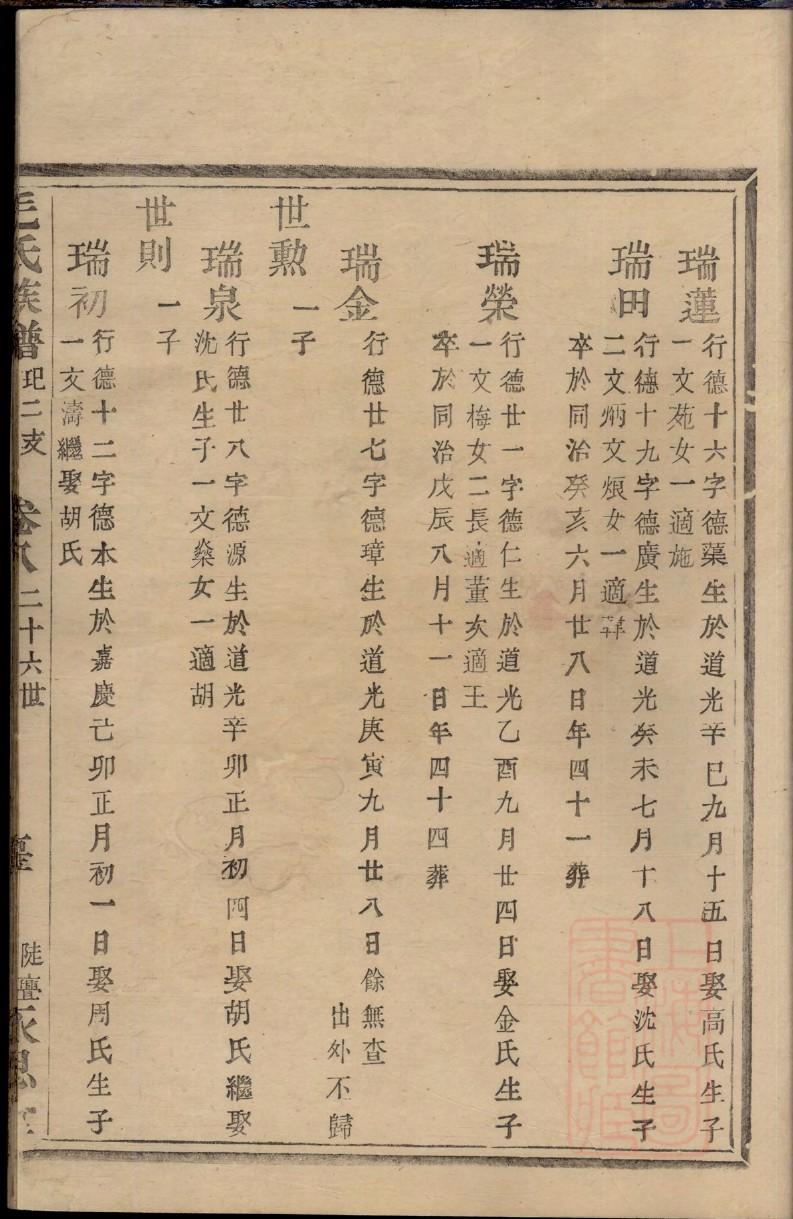 瑞蓮
行德十六字德蕖生於道光辛巳九月十五日娶高氏生子
一文苑女一適施
瑞田
行德十九字德廣生於道光癸未七月十八日娶沈氏生子
二文炳文烺女一適薛
卒於同治癸亥六月廿八日年四十一葬
瑞榮
行德廿一字德仁生於道光乙酉九月廿四日娶金氏生子
一文梅女二長適董次適王
卒於同治戊辰八月十一日年四十四葬
瑞金
行德廿七字德璋生於道光庚寅九月廿八日餘無查
出外不歸
世勲
一子
瑞泉
行德廿八字德源生於道光辛卯正月初四日娶胡氏繼娶
沈氏生子一文燊女一適胡
世則
一子
瑞初
行德十二字德本生於嘉慶己卯正月初一日娶周氏生子
一文濤繼娶胡氏
毛氏族譜
玘二支
卷八
二十六世
陡亹
永思堂